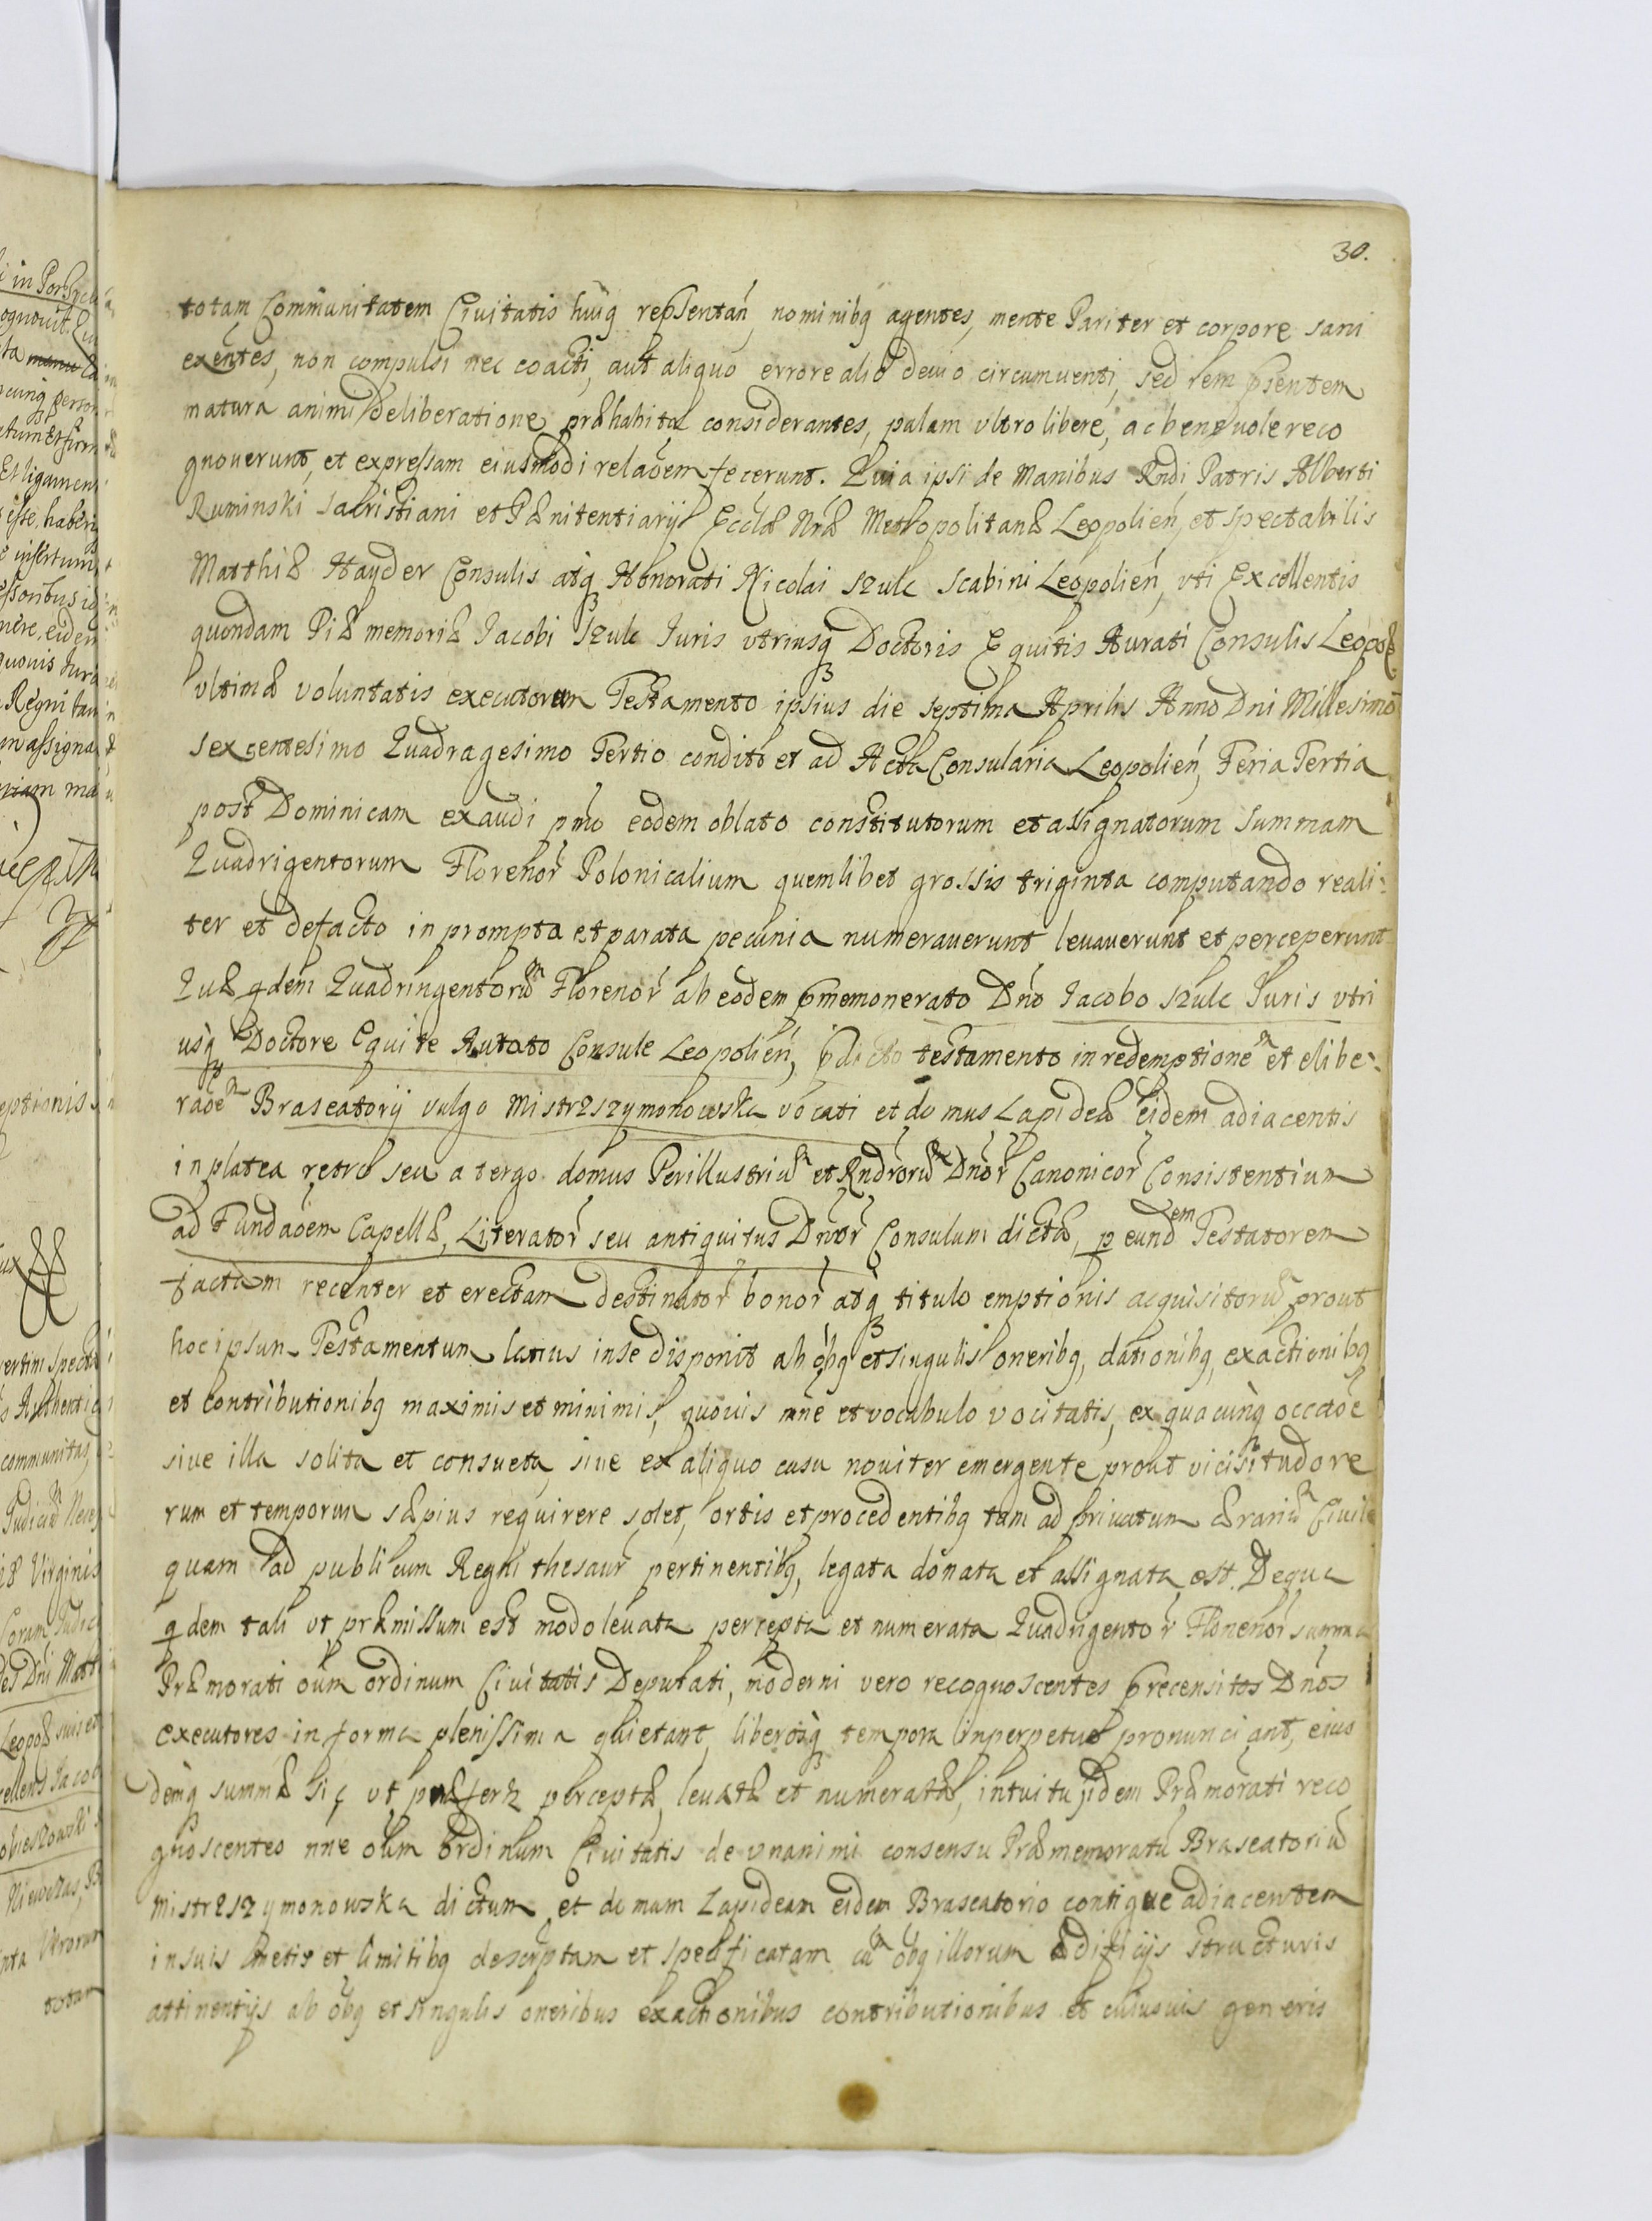 30.
totam Communitatem Civitatis huiq repsentan̄, nominibq agentes, mente Pariter et corpore sani
exentes, non compulsi nec coacti, aut aliquo errore alio deuio circumuenti, sed rem psentem
matura animi deliberatione præhabita considerantes, palam vltro libere, ac beneuole reco
gnouerunt, et expressam eiusmodi relaōem fecerunt. Quia ipsi de Manibus Rndi Patris Alberti
Ruminski Sacristiani et Pænitentiarij Ecclæ Nræ Metropolitanæ Leopolien̄, et spectabilis
Matthiæ Hayder Consulis atq Honorati Nicolai Szulc Scabini Leopolien̄, vti Excellentis
quondam Piæ memoriæ Jacobi Szulc Juris vtriusq Doctoris Equitis Aurati Consulis Leopol
vltimæ voluntatis executorum Testamento ipsius die septima Aprilis Anno Dni Millesimo
sexcentesimo Quadragesimo Tertio condito et ad Acta Consularia Leopolien̄, Feria Tertia
post Dominicam exaudi pmo eodem oblato constitutorum et assignatorum summam
Quadrigentorum Florenor̄ Polonicalium quemlibet grossis triginta computando reali-
ter et defacto in prompta et parata pecunia numerauerunt leuauerunt et perceperunt
Quæ qdem Quadringentorūm Florenor̄ ab eodem pmemonerato Dno Jacobo Szulc Juris vtri
usq Doctore Equite Autato Consule Leopolien̄, pdicto testamento in redemptionem et elibe-
raōem Braseatorij vulgo Mistrzszymonowska vocati et domus Lapideæ eidem adiacentis
in platea retro seu a tergo domus Perillustriūm et Rndrorūm Dnor̄ Canonicor̄ Consistentium
ad Fundaōem Capellæ, Literator̄ seu antiquitus Dnor̄ Consulum dictæ, p eundem Testatorem
factam recenter et erectam destinator̄ bonor̄ atq titulo emptionis acquisitorū prout
hoc ipsum Testamentum latius in se disponit ab ōbq et singulis oneribq, dationibq, exactionibq
et contributionibq maximis et minimis, quouis nn̄e et vocabulo vocitatis, ex quacunq occāōe
siue illa solita et consueta, siue ex aliquo casu nouiter emergente prout vicissitudo re
rum et temporum sæpius requirere solet, ortis et procedentibq tam ad priuatum ærariūm Ciuile
quam ad publicum Regni thesaur̄ pertinentibq, legata donata et assignata est. Dequa
qdem tali vt præmissum est modo leuata percepta et numerata Quadrigentor̄ Florenor̄ summa
Præmorati oūm ordinum Ciuitatis Deputati, moderni vero recognoscentes precensitos Dnos
executores in forma plenissima quietant, liberosq tempora inperpetua pronunciant, eius
demq summæ sic vt præfertr perceptæ, leuatæ et numeratæ, intuitu iidem Præmorati reco
gnoscentes nn̄e oūm ordinum Ciuitatis de vnanimi consensu Præmemoratū Braseatoriū
Mistrzszymonowska dictum et domum Lapideam eidem Braseatorio contigue adiacentem
in suis metis et limitibq descriptam et specificatam cūm ōbq illorum ædificijs structuris
attinentijs ab ōbq et singulis oneribus exactionibus contributionibus et cuiusuis generis